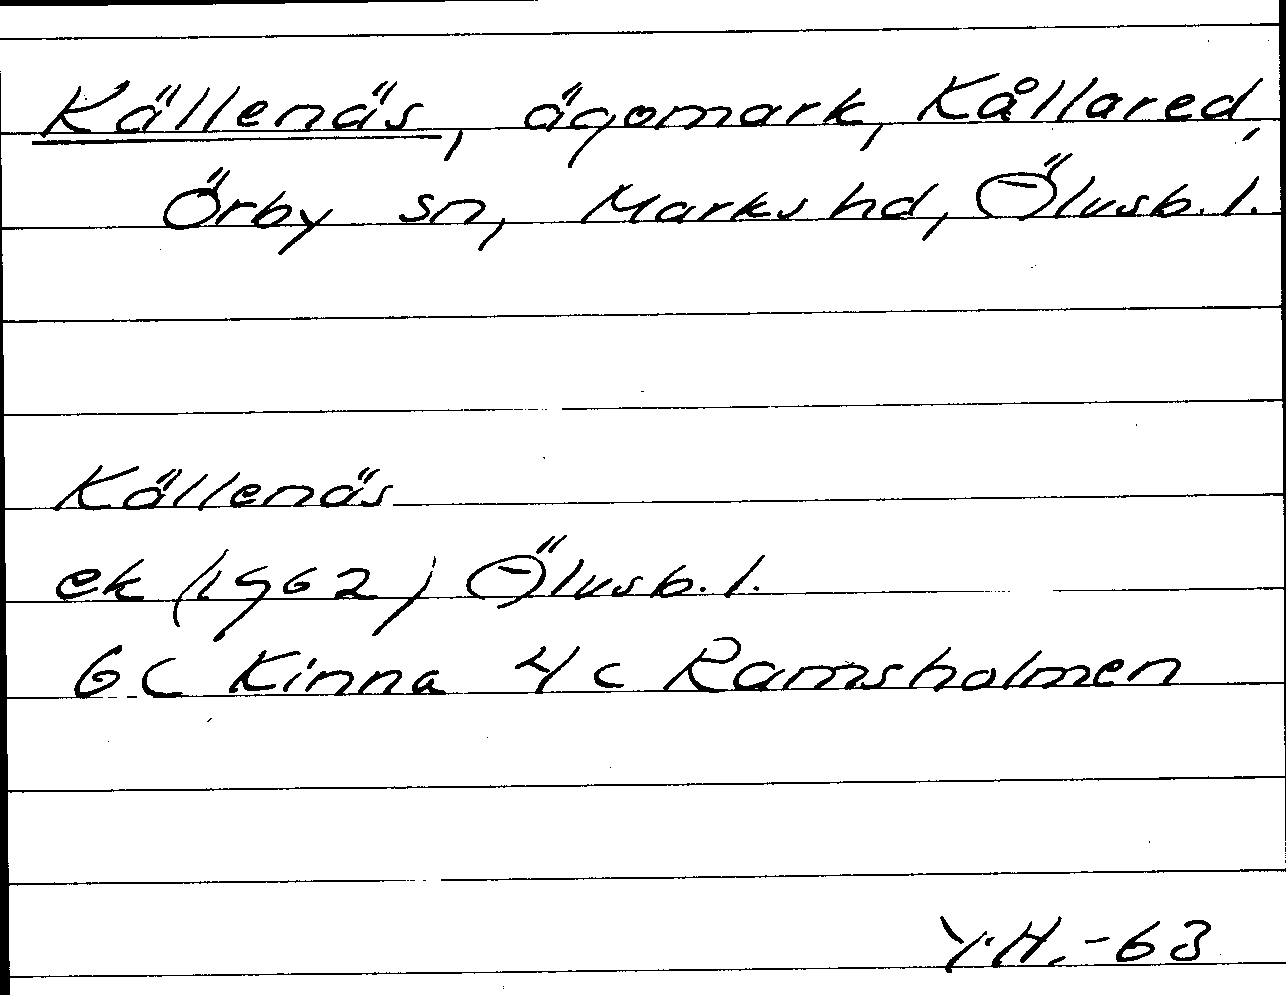 Källenäs, ägomark, Kållared,
Örby sn, Marks hd, Älvsb. l.
Källenäs
ek (1962) Älvsb. l.
6 C Kinna 4 c Ramsholmen
Y.H. -63